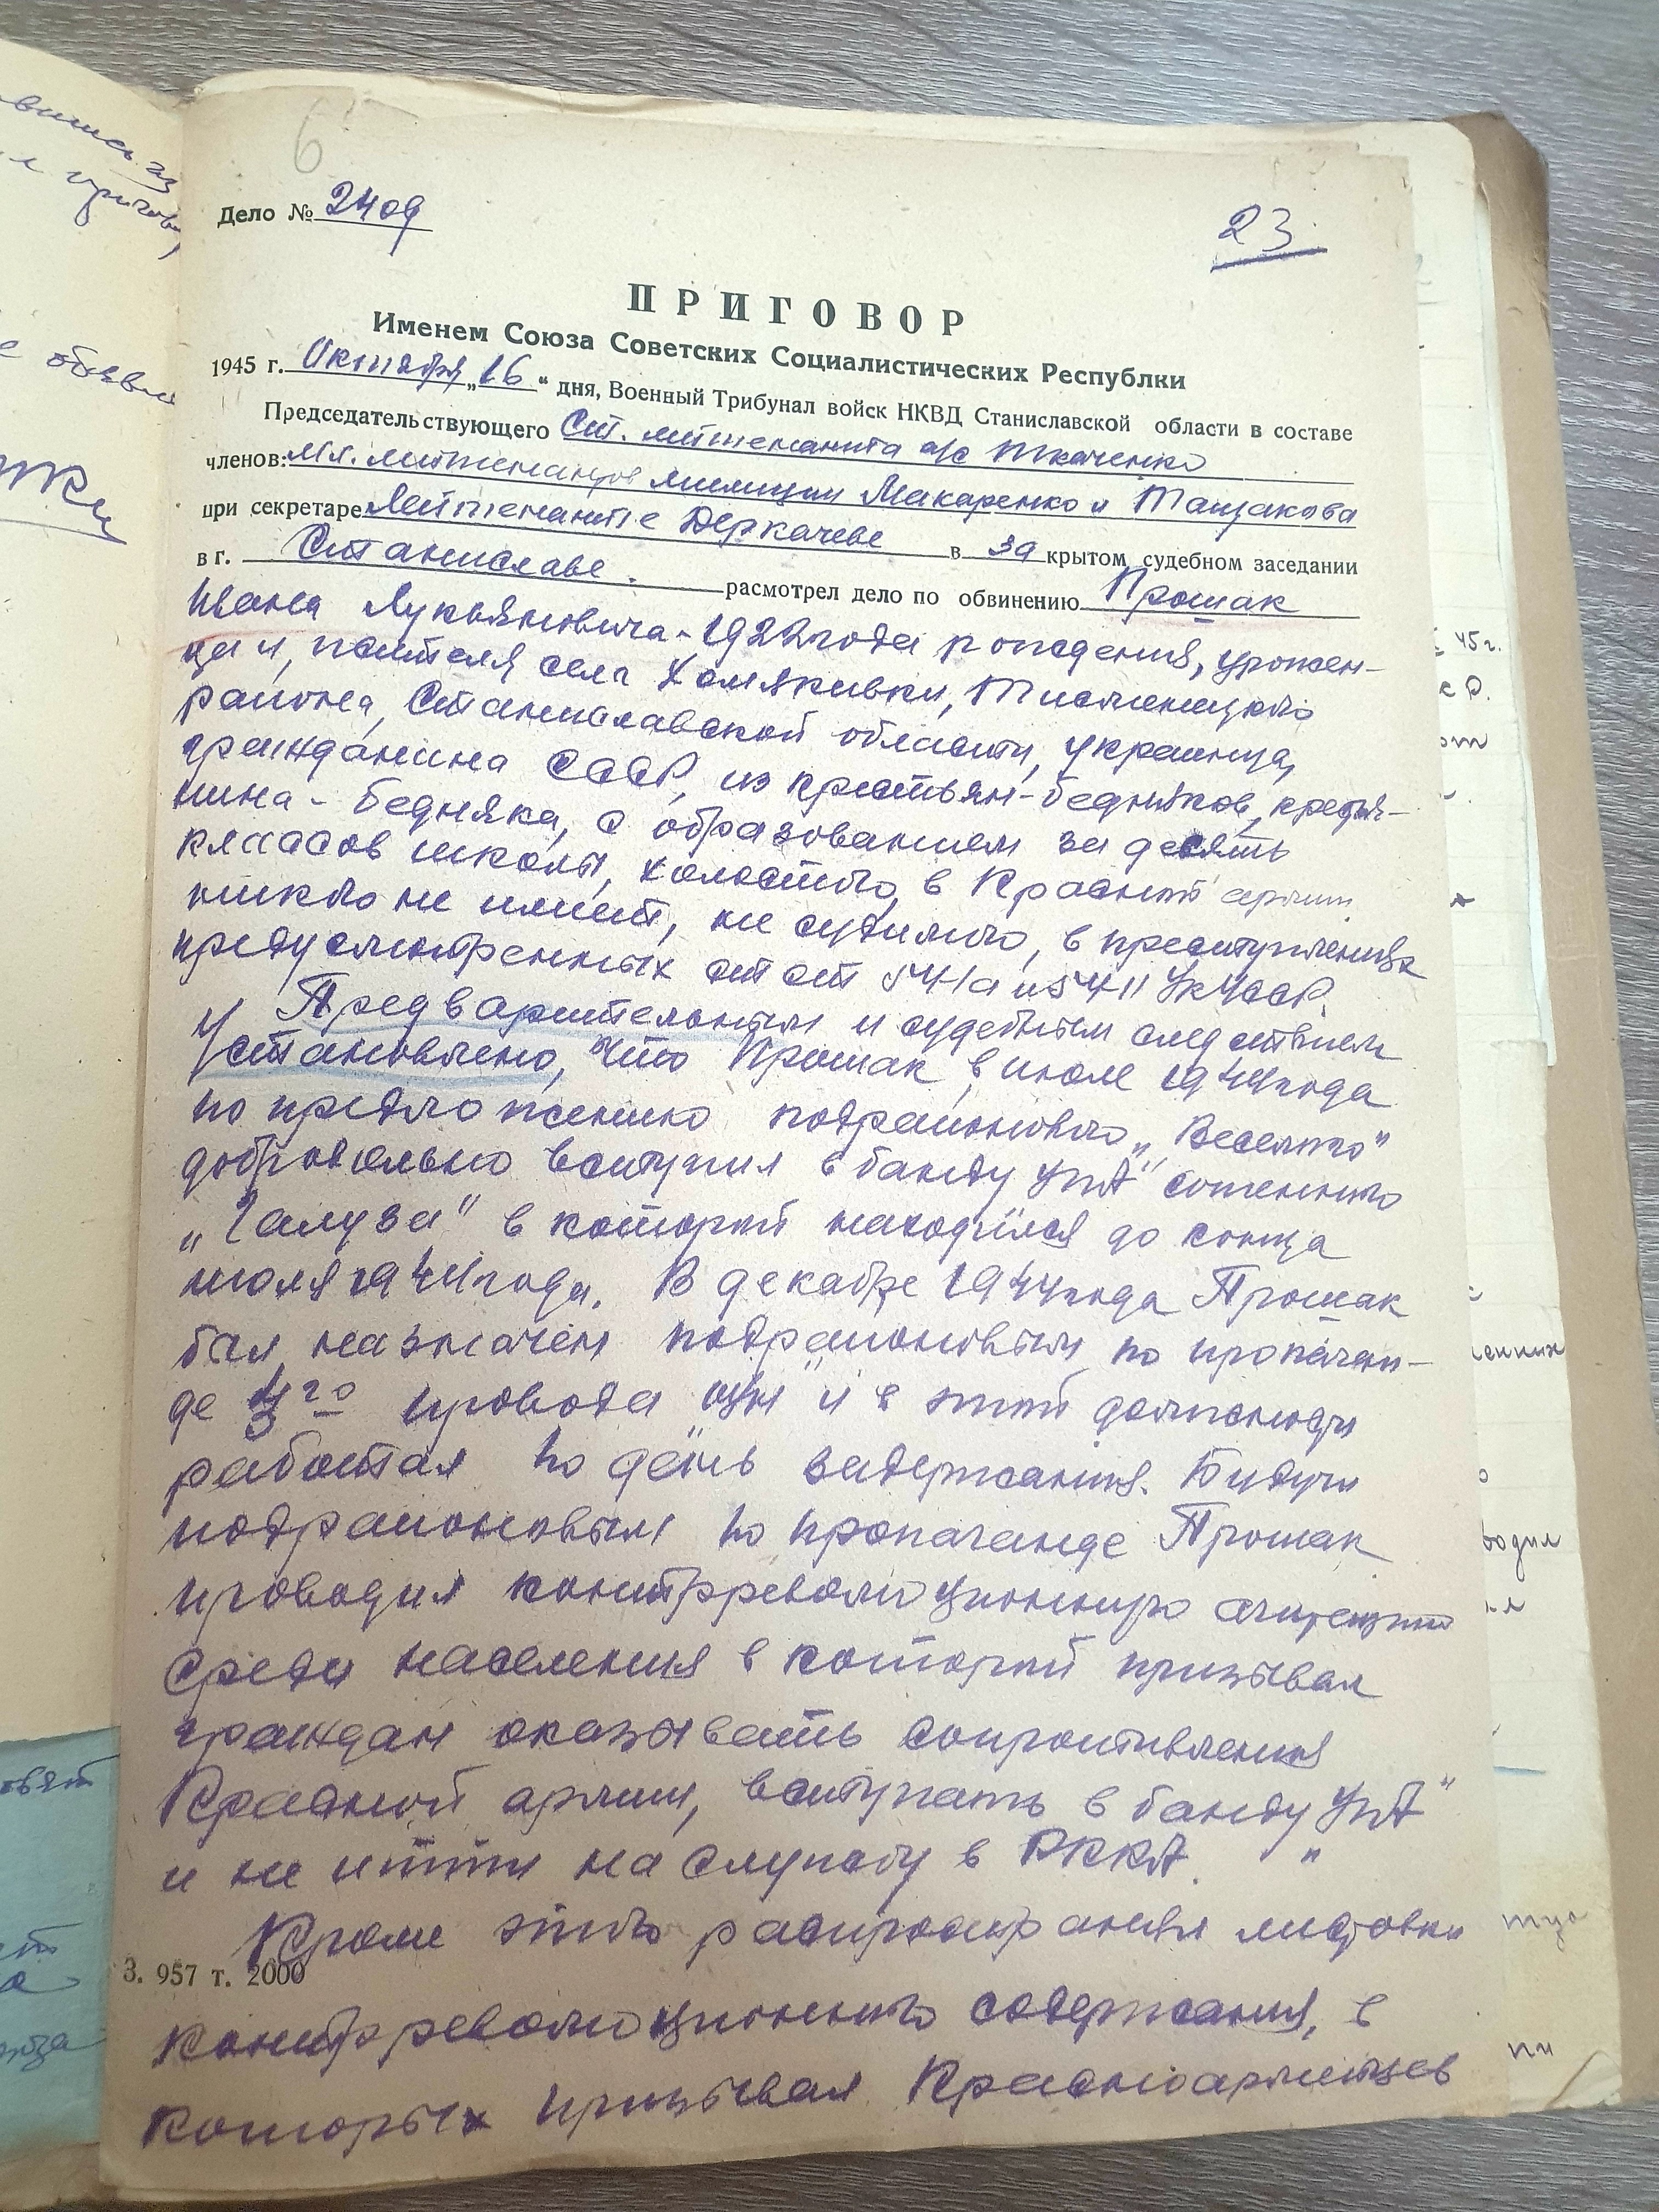 6
Дело № 2409
23
ПРИГОВОР
Именем Союза Советских Социалистических Республки
1945 г. Октября „16“ дня, Военный Трибунал войск НКВД Станиславской области в составе
Председательствующего Ст. лейтенанта а/с Ткаченко
членов: Мл. лейтенантов милиции Макаренко и Тащакова
при секретаре Лейтенанте Деркачеве в закрытом судебном заседании
в г. Станиславе. расмотрел дело по обвинению Прошак
Ивана Лукьяновича - 1922 года рождения, урожен-
ца и, жителя села Хомякивки, Тисменицкого
района, Станиславской области, украинца,
гражданина СССР, из крестьян-бедняков, кресья-
нина - бедняка, с образованием за десять
классов школы, холостого, в Красной армии
никого не имеет, не судимого, в преступлениях
предусмотренных ст ст 54-1а и 54-11 УК УССР.
Предварительным и судебным следствием
Установлено, что Прошак в июле 1944 года
по предложению подрайонового „Веселого“
добровольно вступил в банду УПА" сотенного
„Галуза" в которой находился до конца
июля 1944 года. В декабре 1944 года Прошак
был назначен подрайоновым по пропаган-
де 3го провода и в этой должности
работал по день задержания. Будучи
подрайоновым по пропаганде Прошак
проводил контрреволюционную агитацию
среди населения в которой призывал
граждан оказывать сопротивления
Красной армии, вступать в банду УПА"
и не итти на службу в РККА. "
Кроме этого распространял листовки
З. 957 т. 2000
контрреволюционного содержания, в
которых призывал Красноармейцев